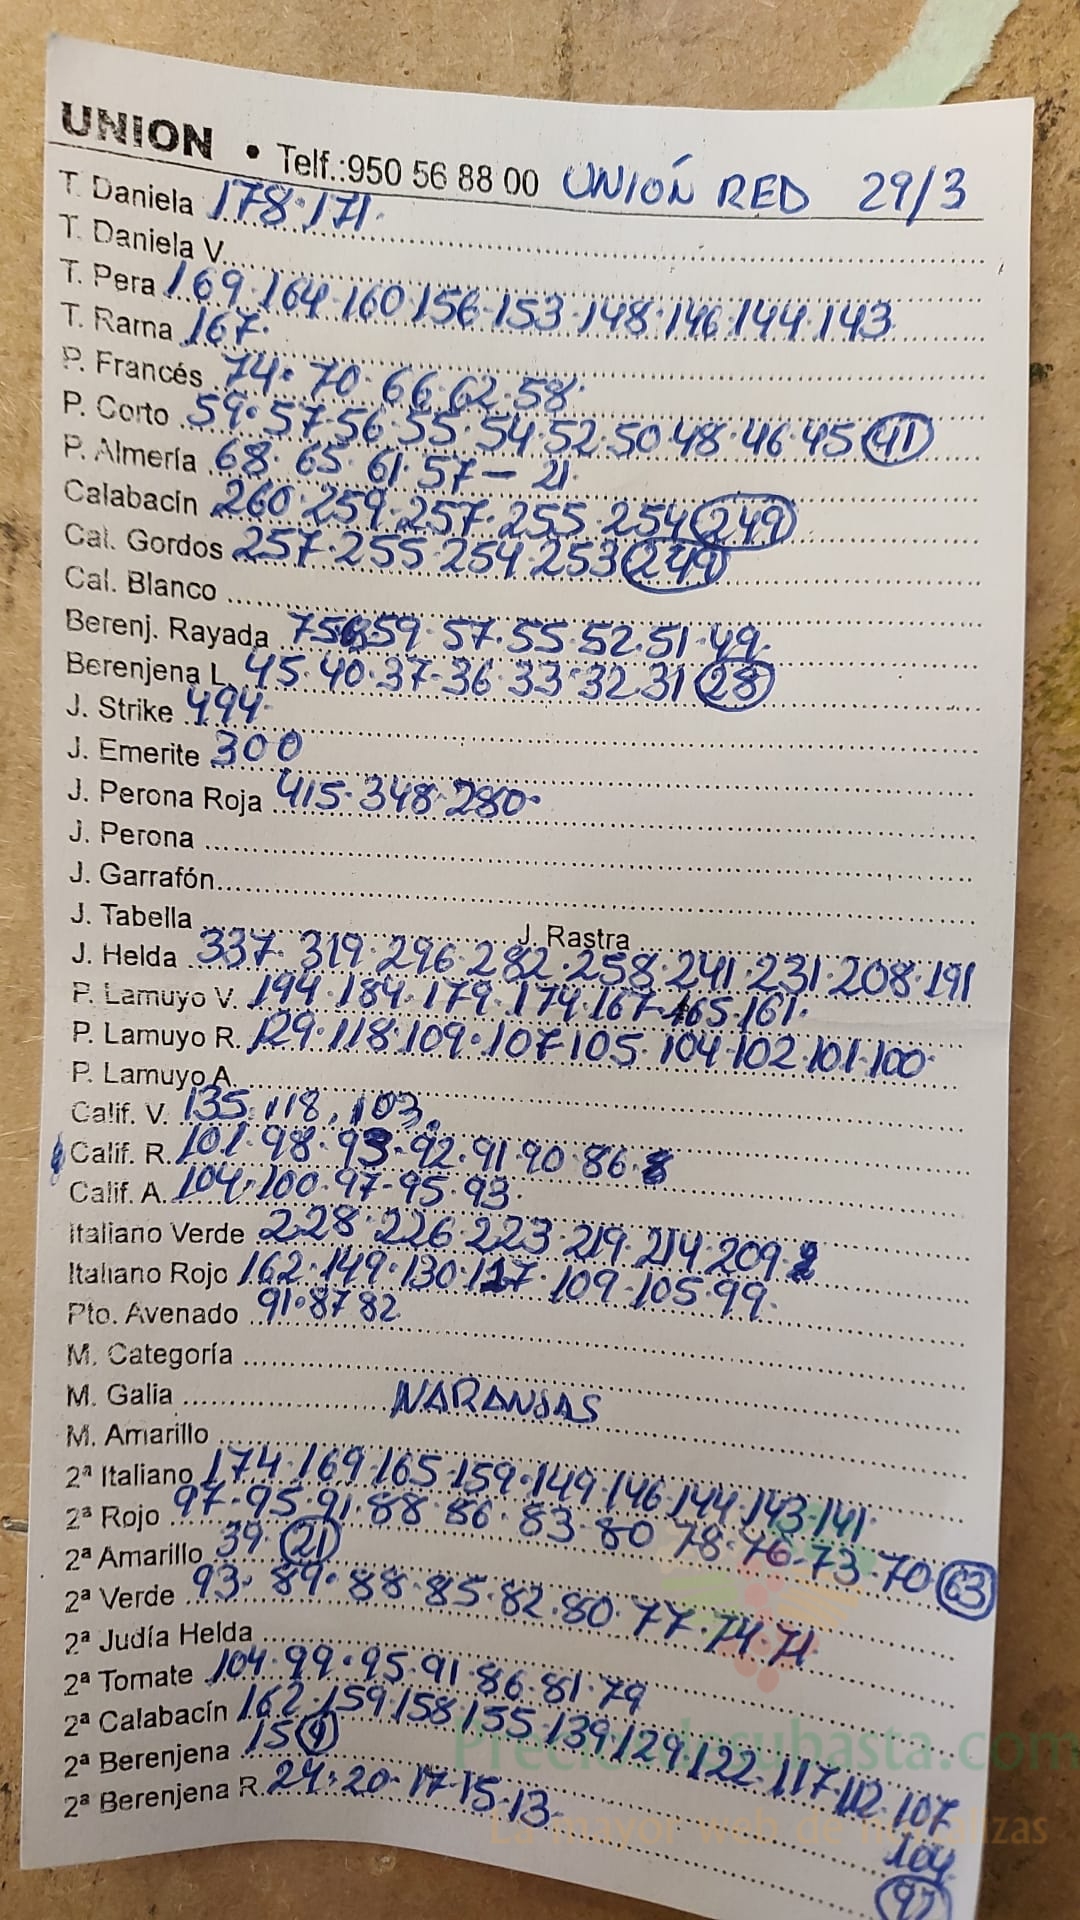 UNION • Telf.:950 56 88 00 UNIÓN RED 29/3
T. Daniela 178·171·
T. Daniela V.
T. Pera 169·164·160·156·153·148·146·144·143
T. Rama 167·
P. Francés 74·70·66·62·58·
P. Corto 59·57·56·55·54·52·50·48·46·45 41
P. Almería 68·65·61·57— 21·
Calabacín 260·259·257·255·254 249
Cal. Gordos 257·255·254·253 249
Cal. Blanco
Berenj. Rayada 59·57·55·52·51·49·
Berenjena L. 45·40·37·36·33·32·31 28
J. Strike 494·
J. Emerite 300
J. Perona Roja 415·348·280·
J. Perona
J. Garrafón
J. Tabella J. Rastra
J. Helda 337·319·296·282·258·241·231·208·191
P. Lamuyo V. 194·184·179·174·167·165·161·
P. Lamuyo R. 129·118·109·107·105·104·102·101·100·
P. Lamuyo A.
Calif. V. 135·118·103·
Calif. R. 101·98·93·92·91·90·86·
Calif. A. 104·100·97·95·93·
Italiano Verde 228·226·223·219·214·209·
Italiano Rojo 162·149·130·117·109·105·99·
Pto. Avenado 91·87 82
M. Categoría
M. Galia NARANJAS
M. Amarillo
2ª Italiano 174·169·165·159·149·146·144·143·141·
2ª Rojo 97·95·91·88·86·83·80 78·76·73·70 63
2ª Amarillo 39· 21
2ª Verde 93·89·88·85·82·80·77·74·71·
2ª Judía Helda
2ª Tomate 104·99·95·91·86·81·79
2ª Calabacín 162·159·158·155·139·129·122·117·112·107
104
92
2ª Berenjena 15 9
2ª Berenjena R. 24·20·17·15·13·
Preciosdesubasta.com
La mayor web de hortalizas